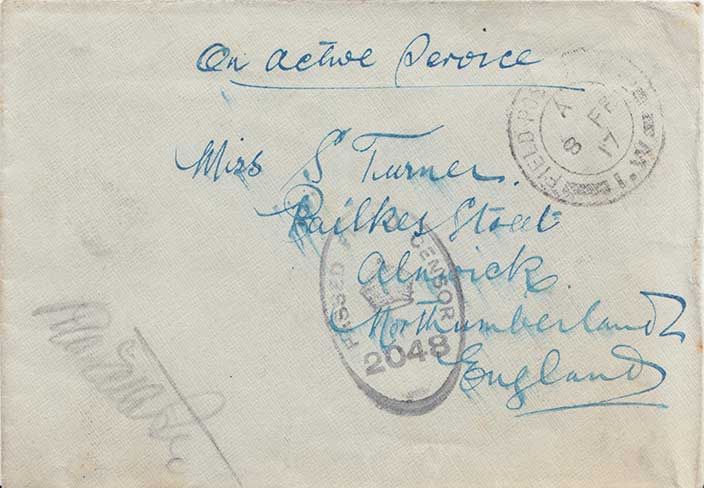 On Active Service
FIELD POS
A
8 FE
17
Miss S Turner.
Street
Alnwick.
Northumberland
England
PASSED CENSOR
2048